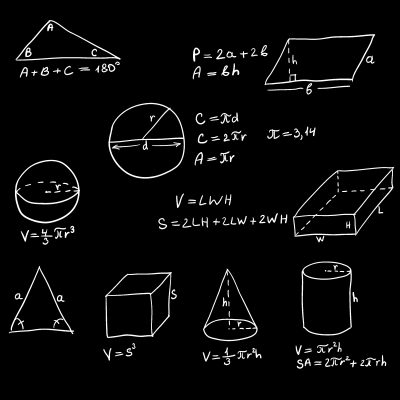 A
B C
A+B+C = 180°
P = 2a + 2b
A = bh
h
a
b
r
d
C = πd
C = 2πr
A = πr
π = 3,14
r
V = 4/3 πr³
V = LWH
S = 2LH + 2LW + 2WH
H
L
W
a a
x x
S
V = S³
h
V = 1/3 πr²h
r
h
V = πr²h
SA = 2πr² + 2πrh